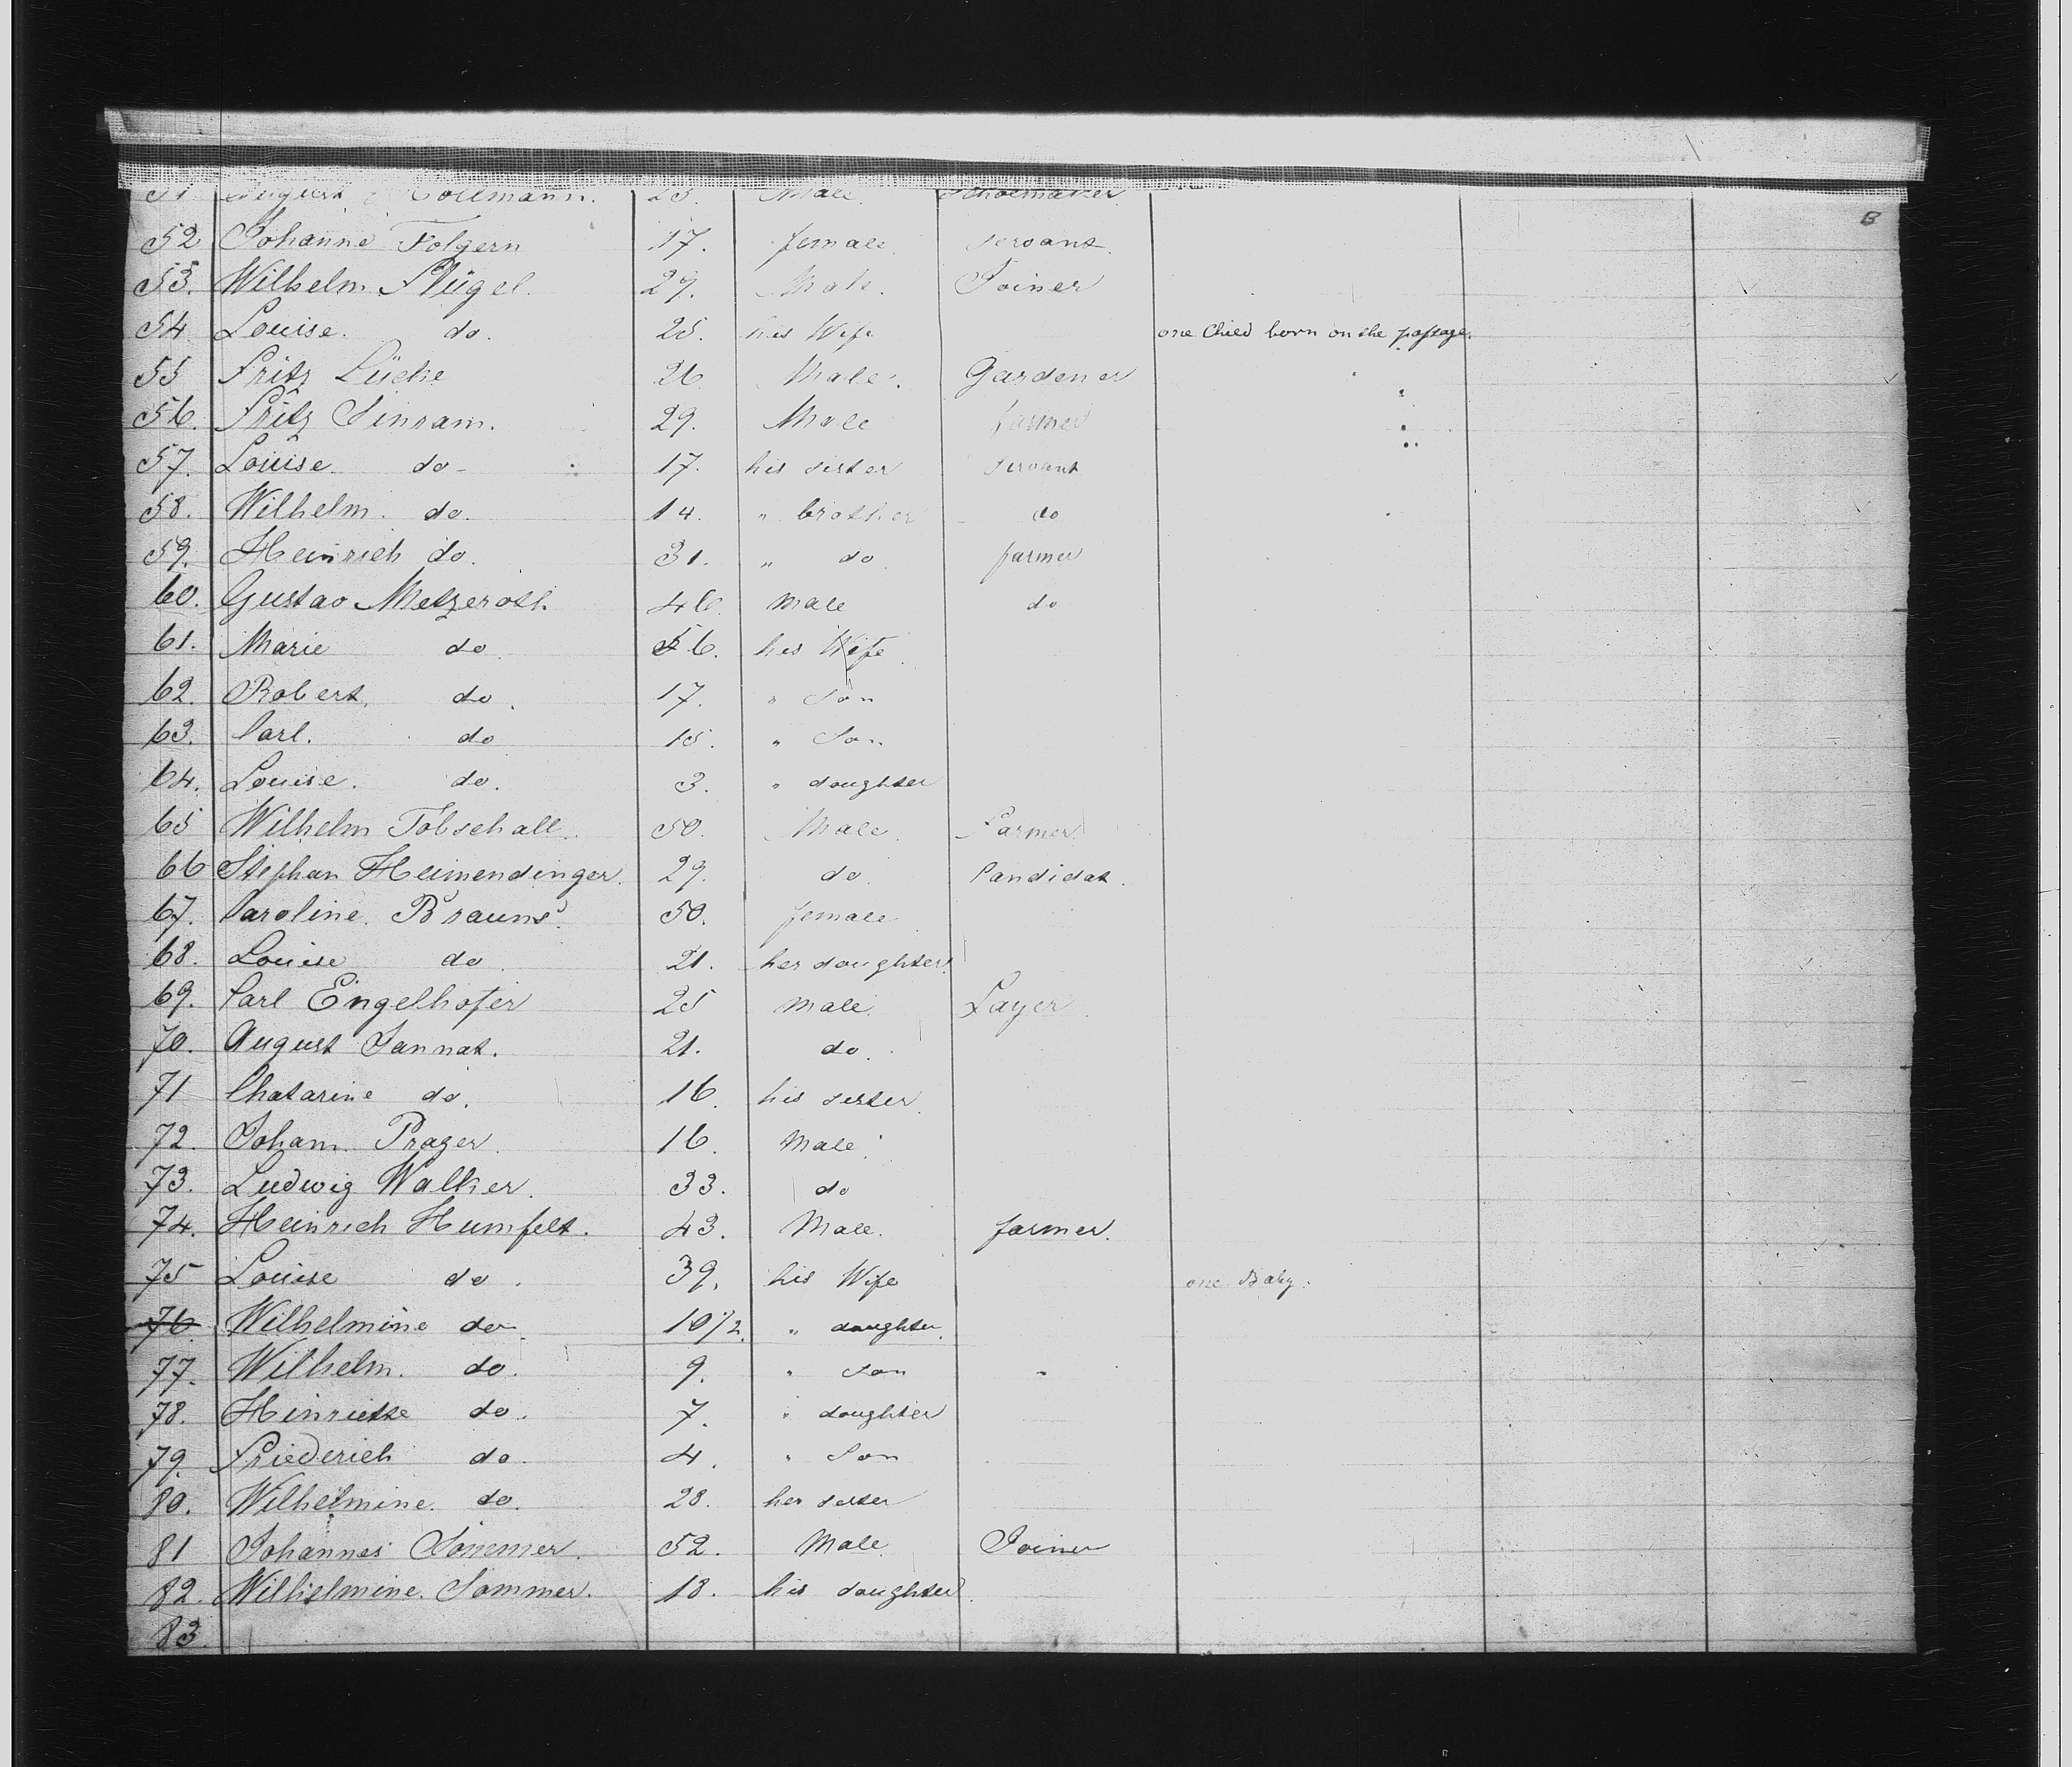 B
51. August Hollmann. 23. Male. Schoemaker
52 Johanne Folgern 17. female. servant.
53. Wilhelm Flügel. 29. Male. Joiner
54 Louise. do. 25. his Wife one Child born on the passage.
55 Fritz Lücke 26. Male. Gardener
56. Fritz Sinram. 29. Male farmer
57. Louise do 17. his sister servant
58. Wilhelm. do. 14. " brother do
59. Heinrich do. 31. " do farmer
60. Gustav Metzeroth 46. Male do
61. Marie do 56. his Wife
62. Robert. do. 17. " Son
63. Carl. do 15. " Son
64. Louise. do. 3. " daughter
65 Wilhelm Töbschall. 50. Male. Farmer
66 Stephan Heimendinger. 29. do. Candidat.
67. Caroline Brauns. 50. female
68. Louise do 21. her daughter.
69. Carl Engelhofer 25 Male. Layer
70. August Jannat. 21. do.
71 Chatarine do. 16. his sister.
72. Johann Prager. 16. Male.
73. Ludwig Walker. 33. do
74. Heinrich Humfelt. 43. Male. farmer.
75 Louise do. 39. his Wife one Baby.
76. Wilhelmine do 10 1/2. " daughter.
77. Wilhelm. do. 9. " Son
78. Hinriette do. 7. " daughter
79. Friederich do. 4. " Son
80. Wilhelmine. do. 28. her sister
81 Johannes Sommer. 52. Male. Joiner
82. Wilhelmine. Sommer. 18. his daughter.
83.